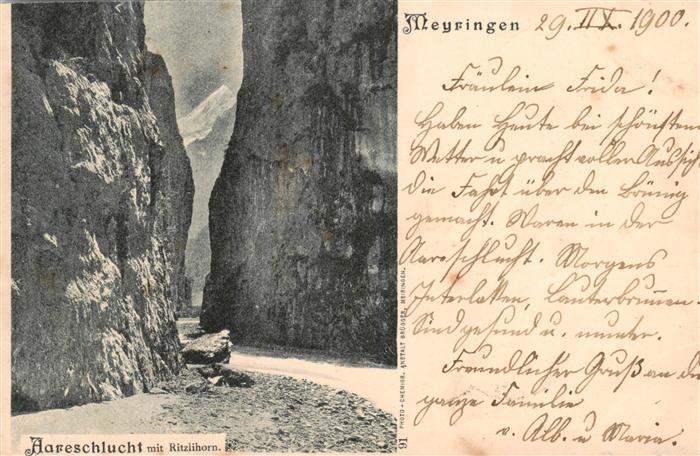 Meyringen 29. IIX. 1900.
Fräulein Frida!
Haben Heute bei schönstem
Wetter u prachtvoller Aussicht
die Fahrt über den Brünig
gemacht. Waren in der
Aareschlucht. Morgens
Interlaken, Lauterbrunnen.
Sind gesund u. munter.
Freundlicher Gruß an die
ganze Familie
v. Alb. u Maria.
91 PHOTO-CHEMIGR. ANSTALT BRÜGGER, MEIRINGEN.
Aareschlucht mit Ritzlihorn.